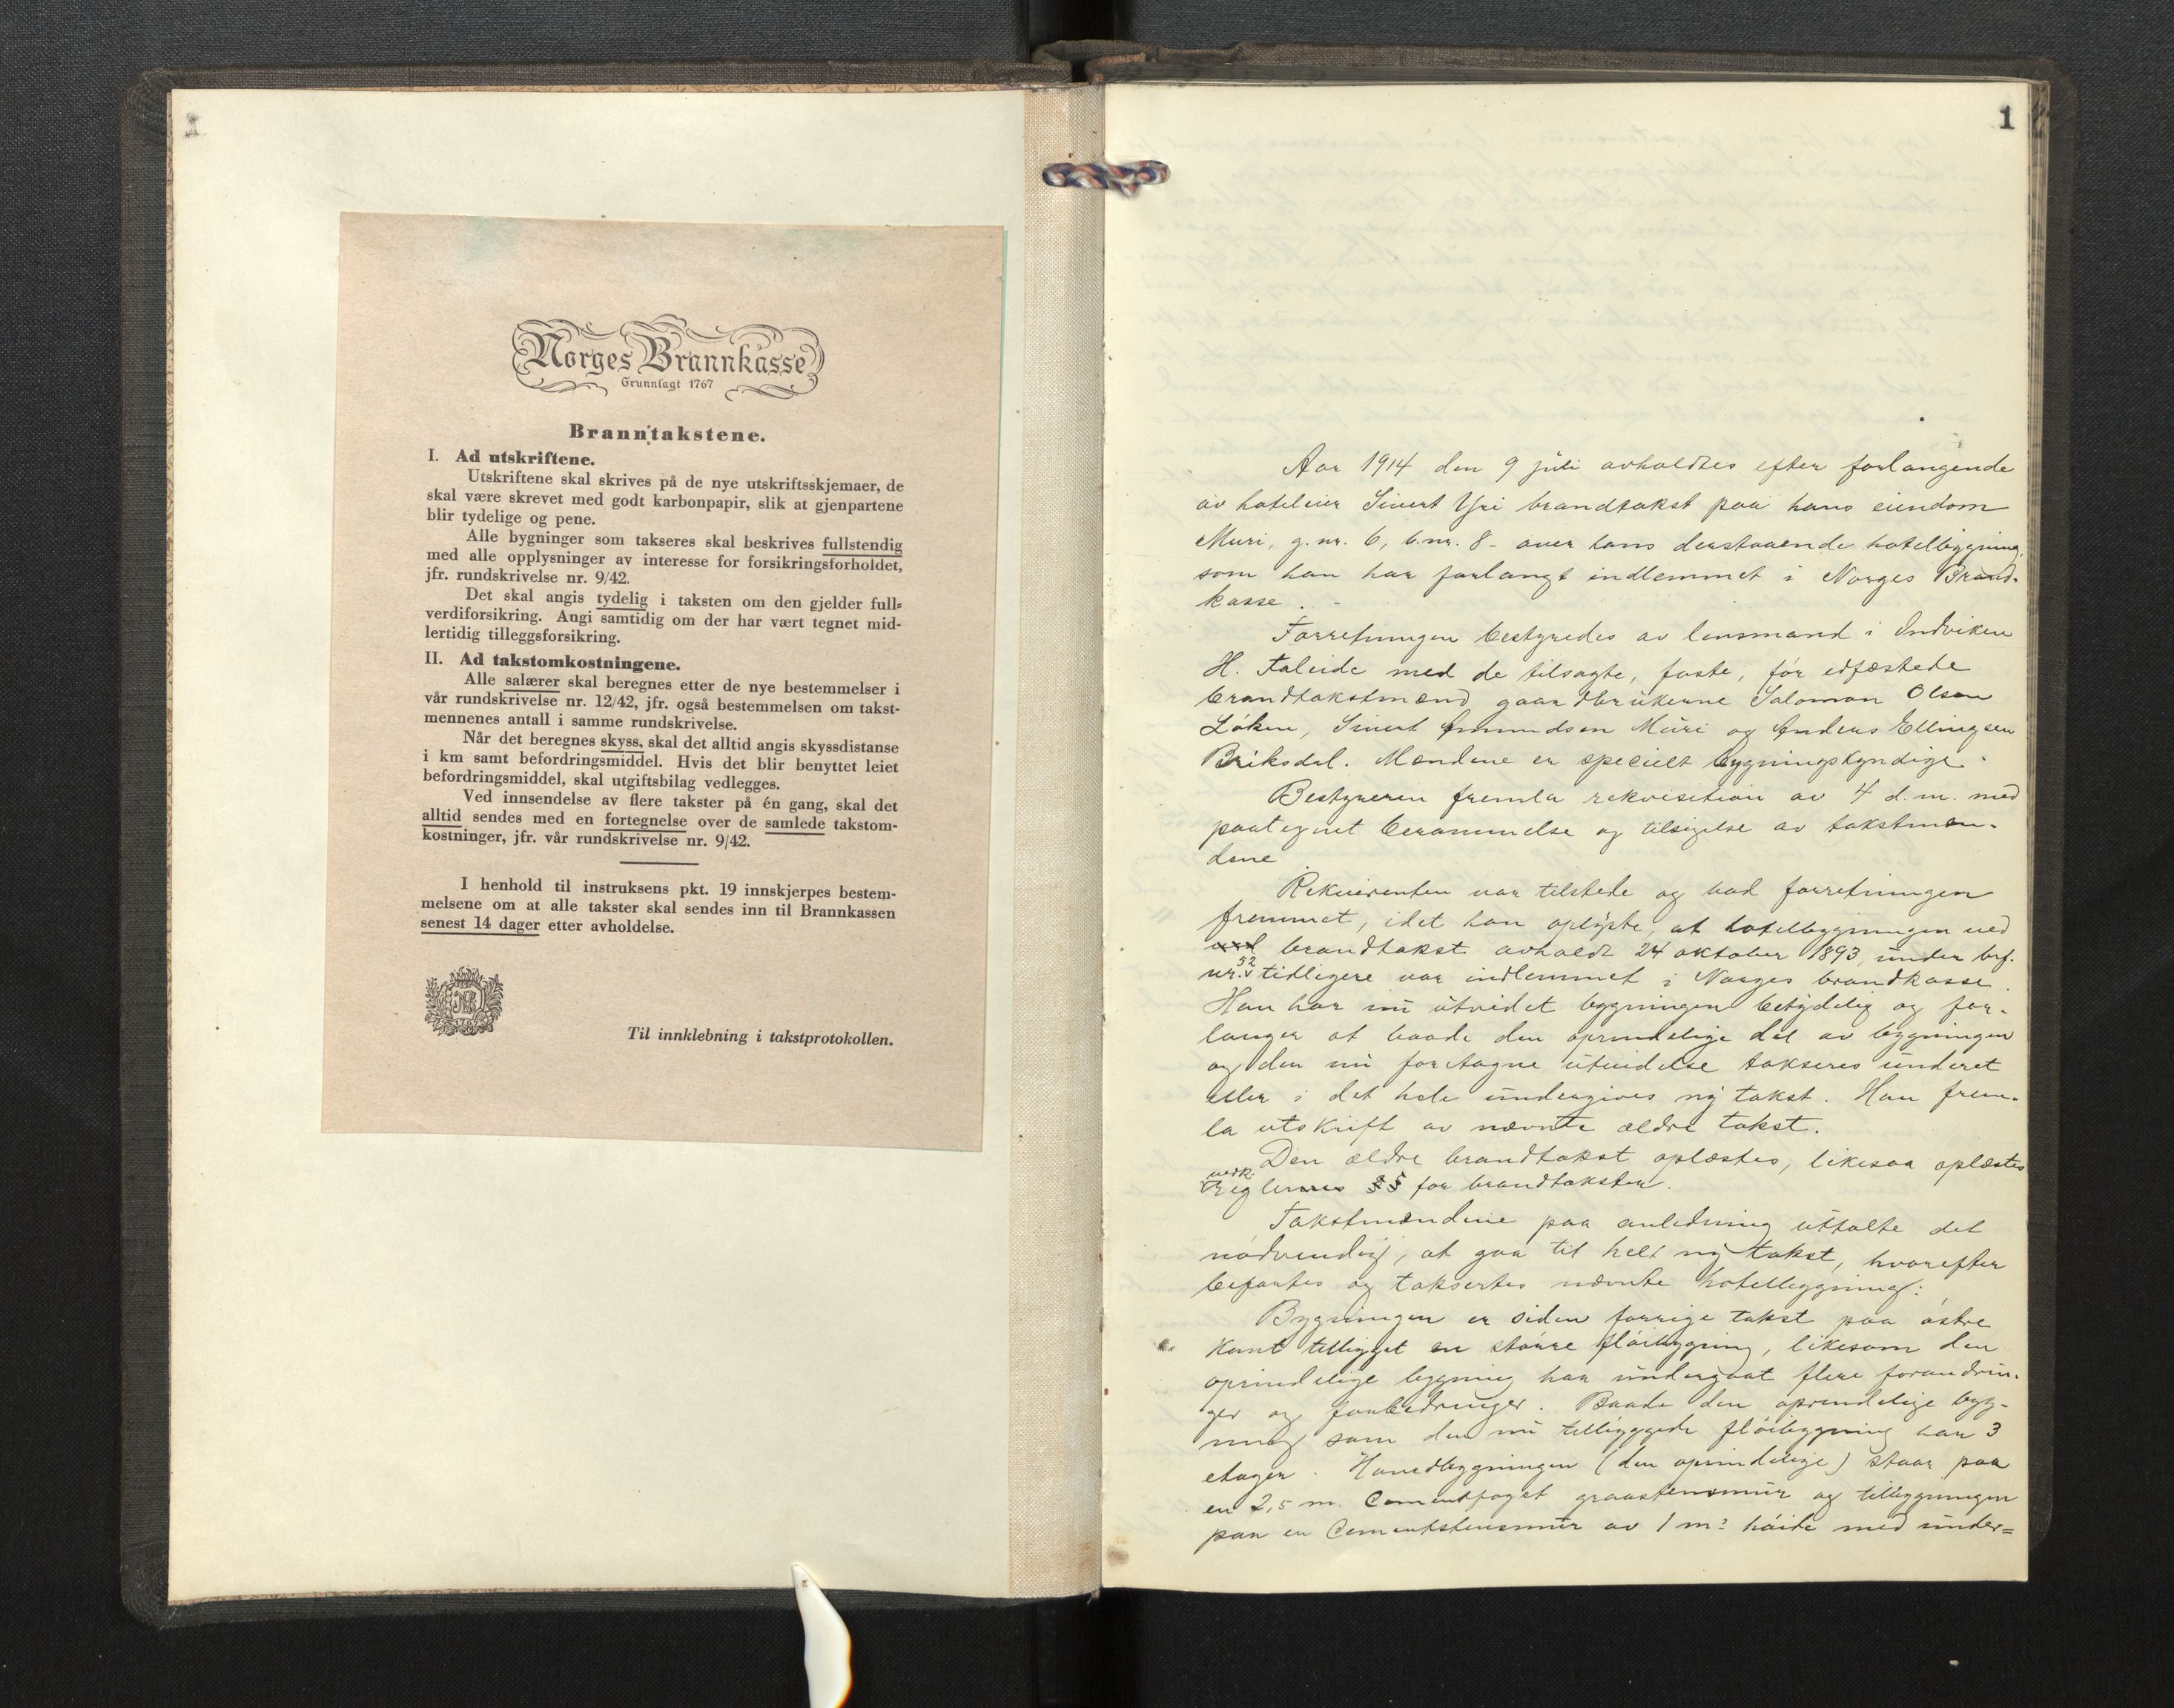 Norges Brannkasse
Grunnlagt 1767
Branntakstene.
I. Ad utskriftene.
Utskriftene skal skrives på de nye utskriftsskjemaer, de
skal være skrevet med godt karbonpapir, slik at gjenpartene
blir tydelige og pene.
Alle bygninger som takseres skal beskrives fullstendig
med alle opplysninger av interesse for forsikringsforholdet,
jfr. rundskrivelse nr. 9/42.
Det skal angis tydelig i taksten om den gjelder full-
verdiforsikring. Angi samtidig om der har vært tegnet mid-
lertidig tilleggsforsikring.
II. Ad takstomkostningene.
Alle salærer skal beregnes etter de nye bestemmelser i
vår rundskrivelse nr. 12/42, jfr. også bestemmelsen om takst-
mennenes antall i samme rundskrivelse.
Når det beregnes skyss, skal det alltid angis skyssdistanse
i km samt befordringsmiddel. Hvis det blir benyttet leiet
befordringsmiddel, skal utgiftsbilag vedlegges.
Ved innsendelse av flere takster på én gang, skal det
alltid sendes med en fortegnelse over de samlede takstom-
kostninger, jfr. vår rundskrivelse nr. 9/42.
I henhold til instruksens pkt. 19 innskjerpes bestem-
melsene om at alle takster skal sendes inn til Brannkassen
senest 14 dager etter avholdelse.
Til innklebning i takstprotokollen.
1
Aar 1914 den 9 juli avholdtes efter forlangende
av hoteleier Sivert Yri brandtakst paa hans eiendom
Muri, g.nr. 6, b.nr. 8 - over hans derstaaende hotelbygning,
som han har forlangt indlemmet i Norges Brand-
kasse. -
Forretningen bestyredes av lensmand i Indviken
H. Faleide med de tilsagte, faste, før edfæstede
brandtakstmænd gaardbrukerne Salomon Olsen
Løken, Sivert Amundsen Muri og Anders Ellingsen
Briksdal. Mændene er specielt bygningskyndige.
Bestyreren fremla rekvisition av 4 d.m. med
paategnet berammelse og tilsigelse av takstmæn-
dene
Rekvirenten var tilstede og bad forretningen
fremmet, idet han oplyste, at hotelbygningen ved
brandtakst avholdt 24 oktober 1893, under brf.
nr. 52 tidligere var indlemmet i Norges brandkasse.
Han har nu utvidet bygningen betydelig og for-
langer at baade den oprindelige del av bygningen
og den nu foretagne utvidelse takseres underet
eller i det hele undergives ny takst. Han frem-
la utskrift av nævnte ældre takst.
Den ældre brandtakst oplæstes, likesaa oplæstes
vedk. Reglernes §§ for brandtaksten.
Takstmændene paa anledning uttalte det
nødvendig, at gaa til helt ny takst, hvorefter
befartes og taksertes nævnte hotelbygning:
Bygningen er siden forrige takst paa østre
kant tilbygget en større fløibygning, likesom den
oprindelige bygning har undergaat flere forandrin-
ger og forbedringer. Baade den oprindelige byg-
ning som den nu tilbyggede fløibygning har 3
etager. Hovedbygningen (den oprindelige) staar paa
en 2,5 m. Cementfuget graastensmur og tilbygningen
paa en Cementstensmur av 1 m² høide med under=